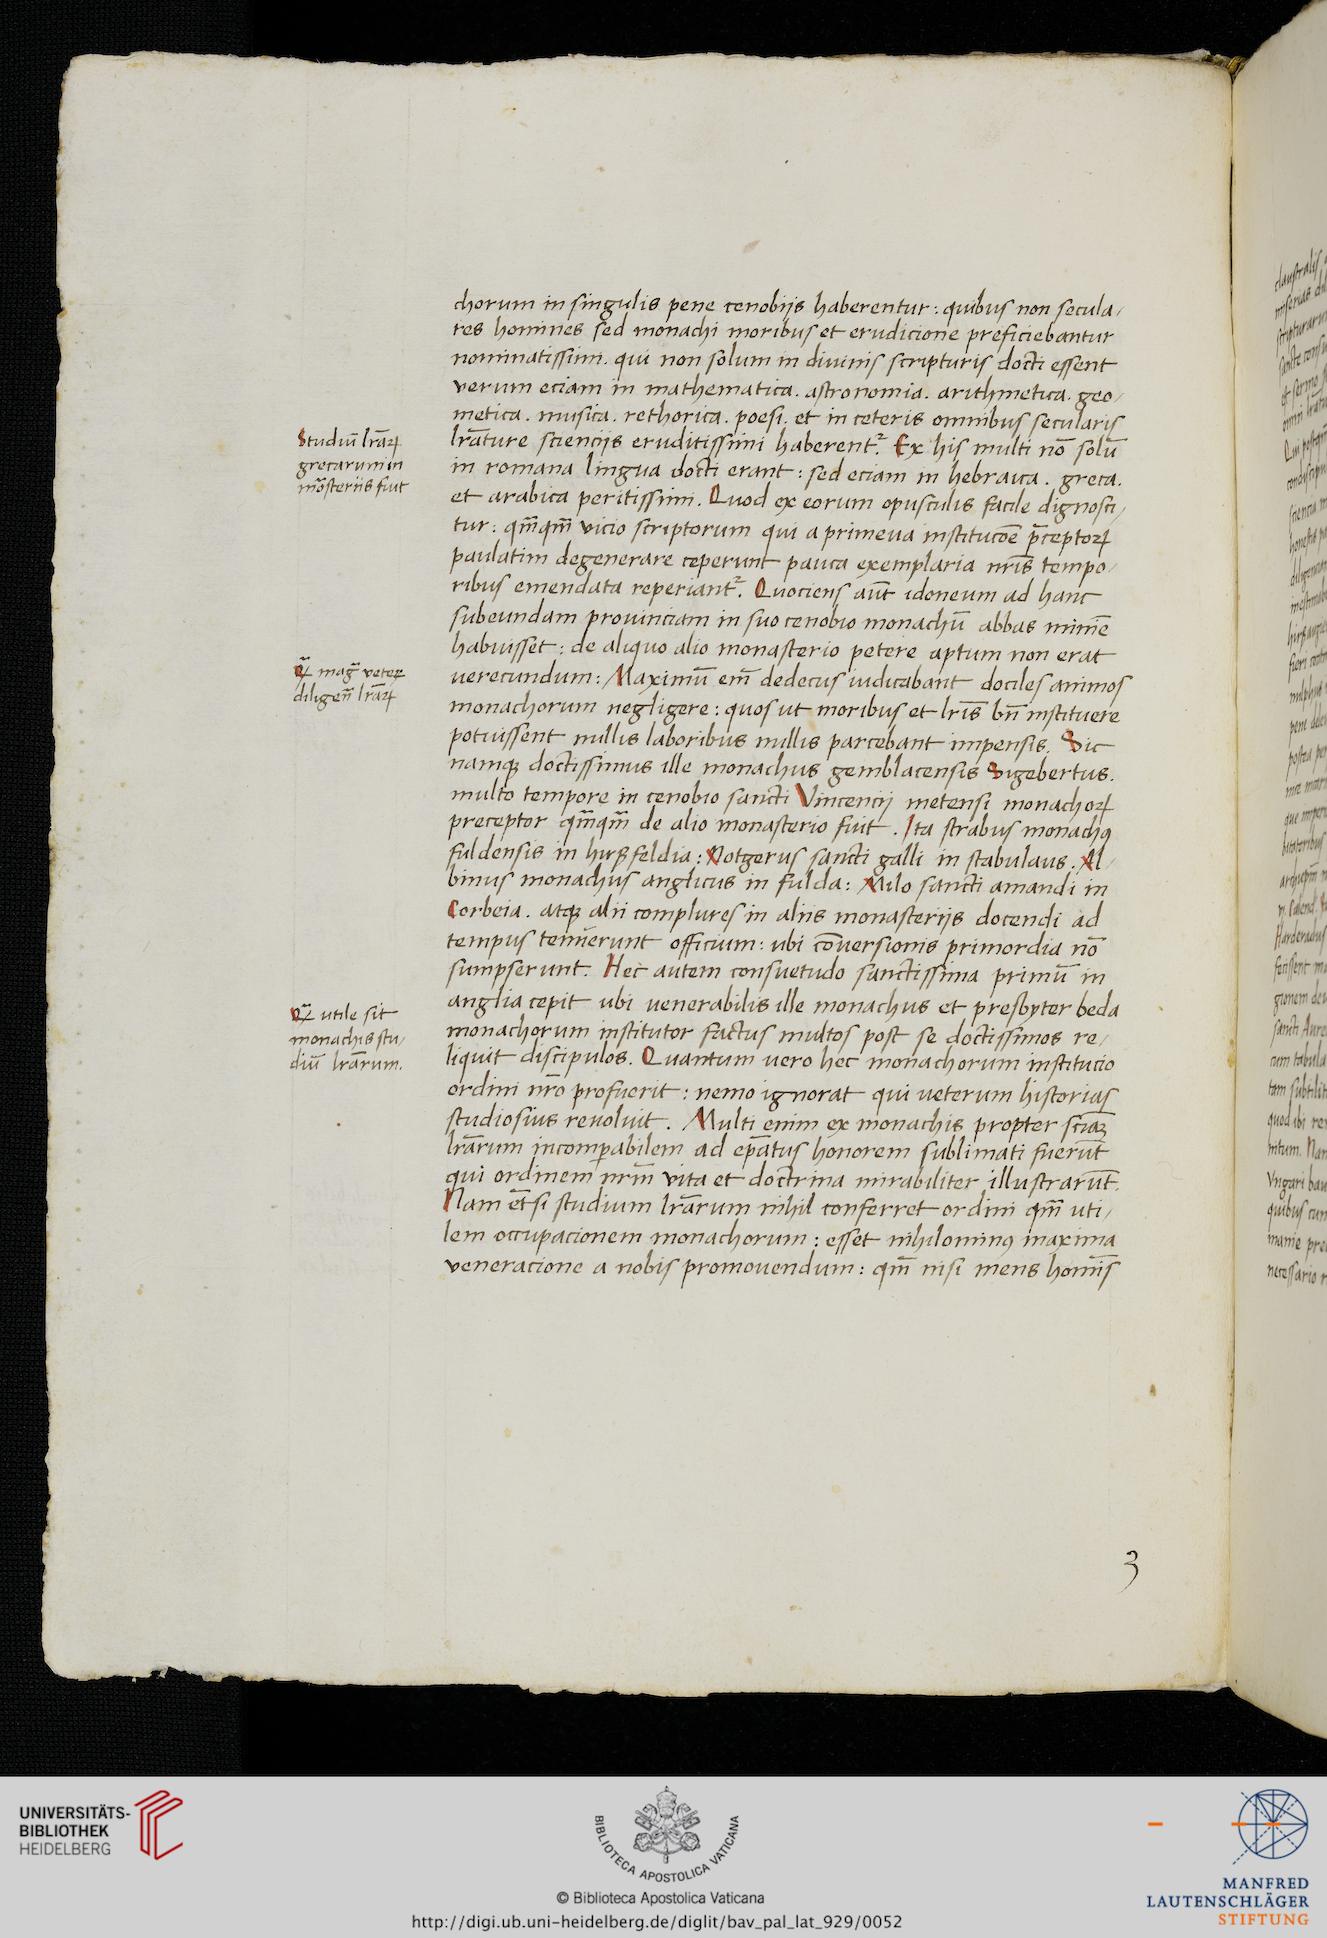 chorum in singulis pene cenobijs haberentur: quibus non secula/
res homines sed monachi moribus et erudicione preficiebantur
nominatissimi. qui non solum in diuinis scripturis docti essent
verum eciam in mathematica. astronomia. arithmetica. geo/
metica. musica. rethorica. poesi. et in ceteris omnibus secularis
Studiū lr̄aꝝ
grecarum in
mōsteriis fuit
lr̄ature sciencijs eruditissimi haberentᷣ. Ex his multi nō solū
in romana lingua docti erant: sed eciam in hebraica. greca.
et arabica peritissimi. Quod ex eorum opusculis facile dignosci/
tur: qm̄qm̄ vicio scriptorum qui a primeua institucōe p̄ceptoꝝ
paulatim degenerare ceperunt pauca exemplaria nr̄is tempo/
ribus emendata reperiantᷣ. Quociens aūt idoneum ad hanc
subeundam prouinciam in suo cenobio monachū abbas minīe
habuisset: de aliquo alio monasterio petere aptum non erat
maḡ veteꝝ
diligen̄ lr̄aꝝ
verecundum: Maximū em̄ dedecus iudicabant dociles animos
monachorum negligere: quos ut moribus et lr̄is bn̄ instituere
potuissent nullis laboribus nullis parcebant impensis. Sic
namqꝫ doctissimus ille monachus gemblacensis Sigebertus.
multo tempore in cenobio sancti Vincencij metensi monachoꝝ
preceptor qm̄qm̄ de alio monasterio fuit. Ita strabus monachꝯ
fuldensis in hirßfeldia: Notgerus sancti galli in stabulaus. Al/
binus monachus anglicus in fulda: Milo sancti amandi in
Corbeia. atqꝫ alii complures in aliis monasterijs docendi ad
tempus tenuerunt officium: ubi cōuersionis primordia nō
sumpserunt. Hec autem consuetudo sanctissima primū in
anglia cepit ubi venerabilis ille monachus et presbyter beda
utile sit
monachis stu/
diū lr̄arum.
monachorum institutor factus multos post se doctissimos re/
liquit discipulos. Quantum vero hec monachorum institucio
ordini nr̄o profuerit: nemo ignorat qui veterum historias
studiosius reuoluit. Multi enim ex monachis propter sciāꝫ
lr̄arum incomꝑabilem ad ep̄atus honorem sublimati fuerūt
qui ordinem nr̄m vita et doctrina mirabiliter illustrarūt.
Nam et̄si studium lr̄arum nihil conferret ordini qm̄ uti/
lem occupacionem monachorum: esset nihilominꝯ maxima
veneracione a nobis promouendum: qm̄ nisi mens homīs
3
UNIVERSITÄTS-
BIBLIOTHEK
HEIDELBERG
BIBLIOTECA APOSTOLICA VATICANA
© Biblioteca Apostolica Vaticana
http://digi.ub.uni-heidelberg.de/diglit/bav_pal_lat_929/0052
MANFRED
LAUTENSCHLÄGER
STIFTUNG